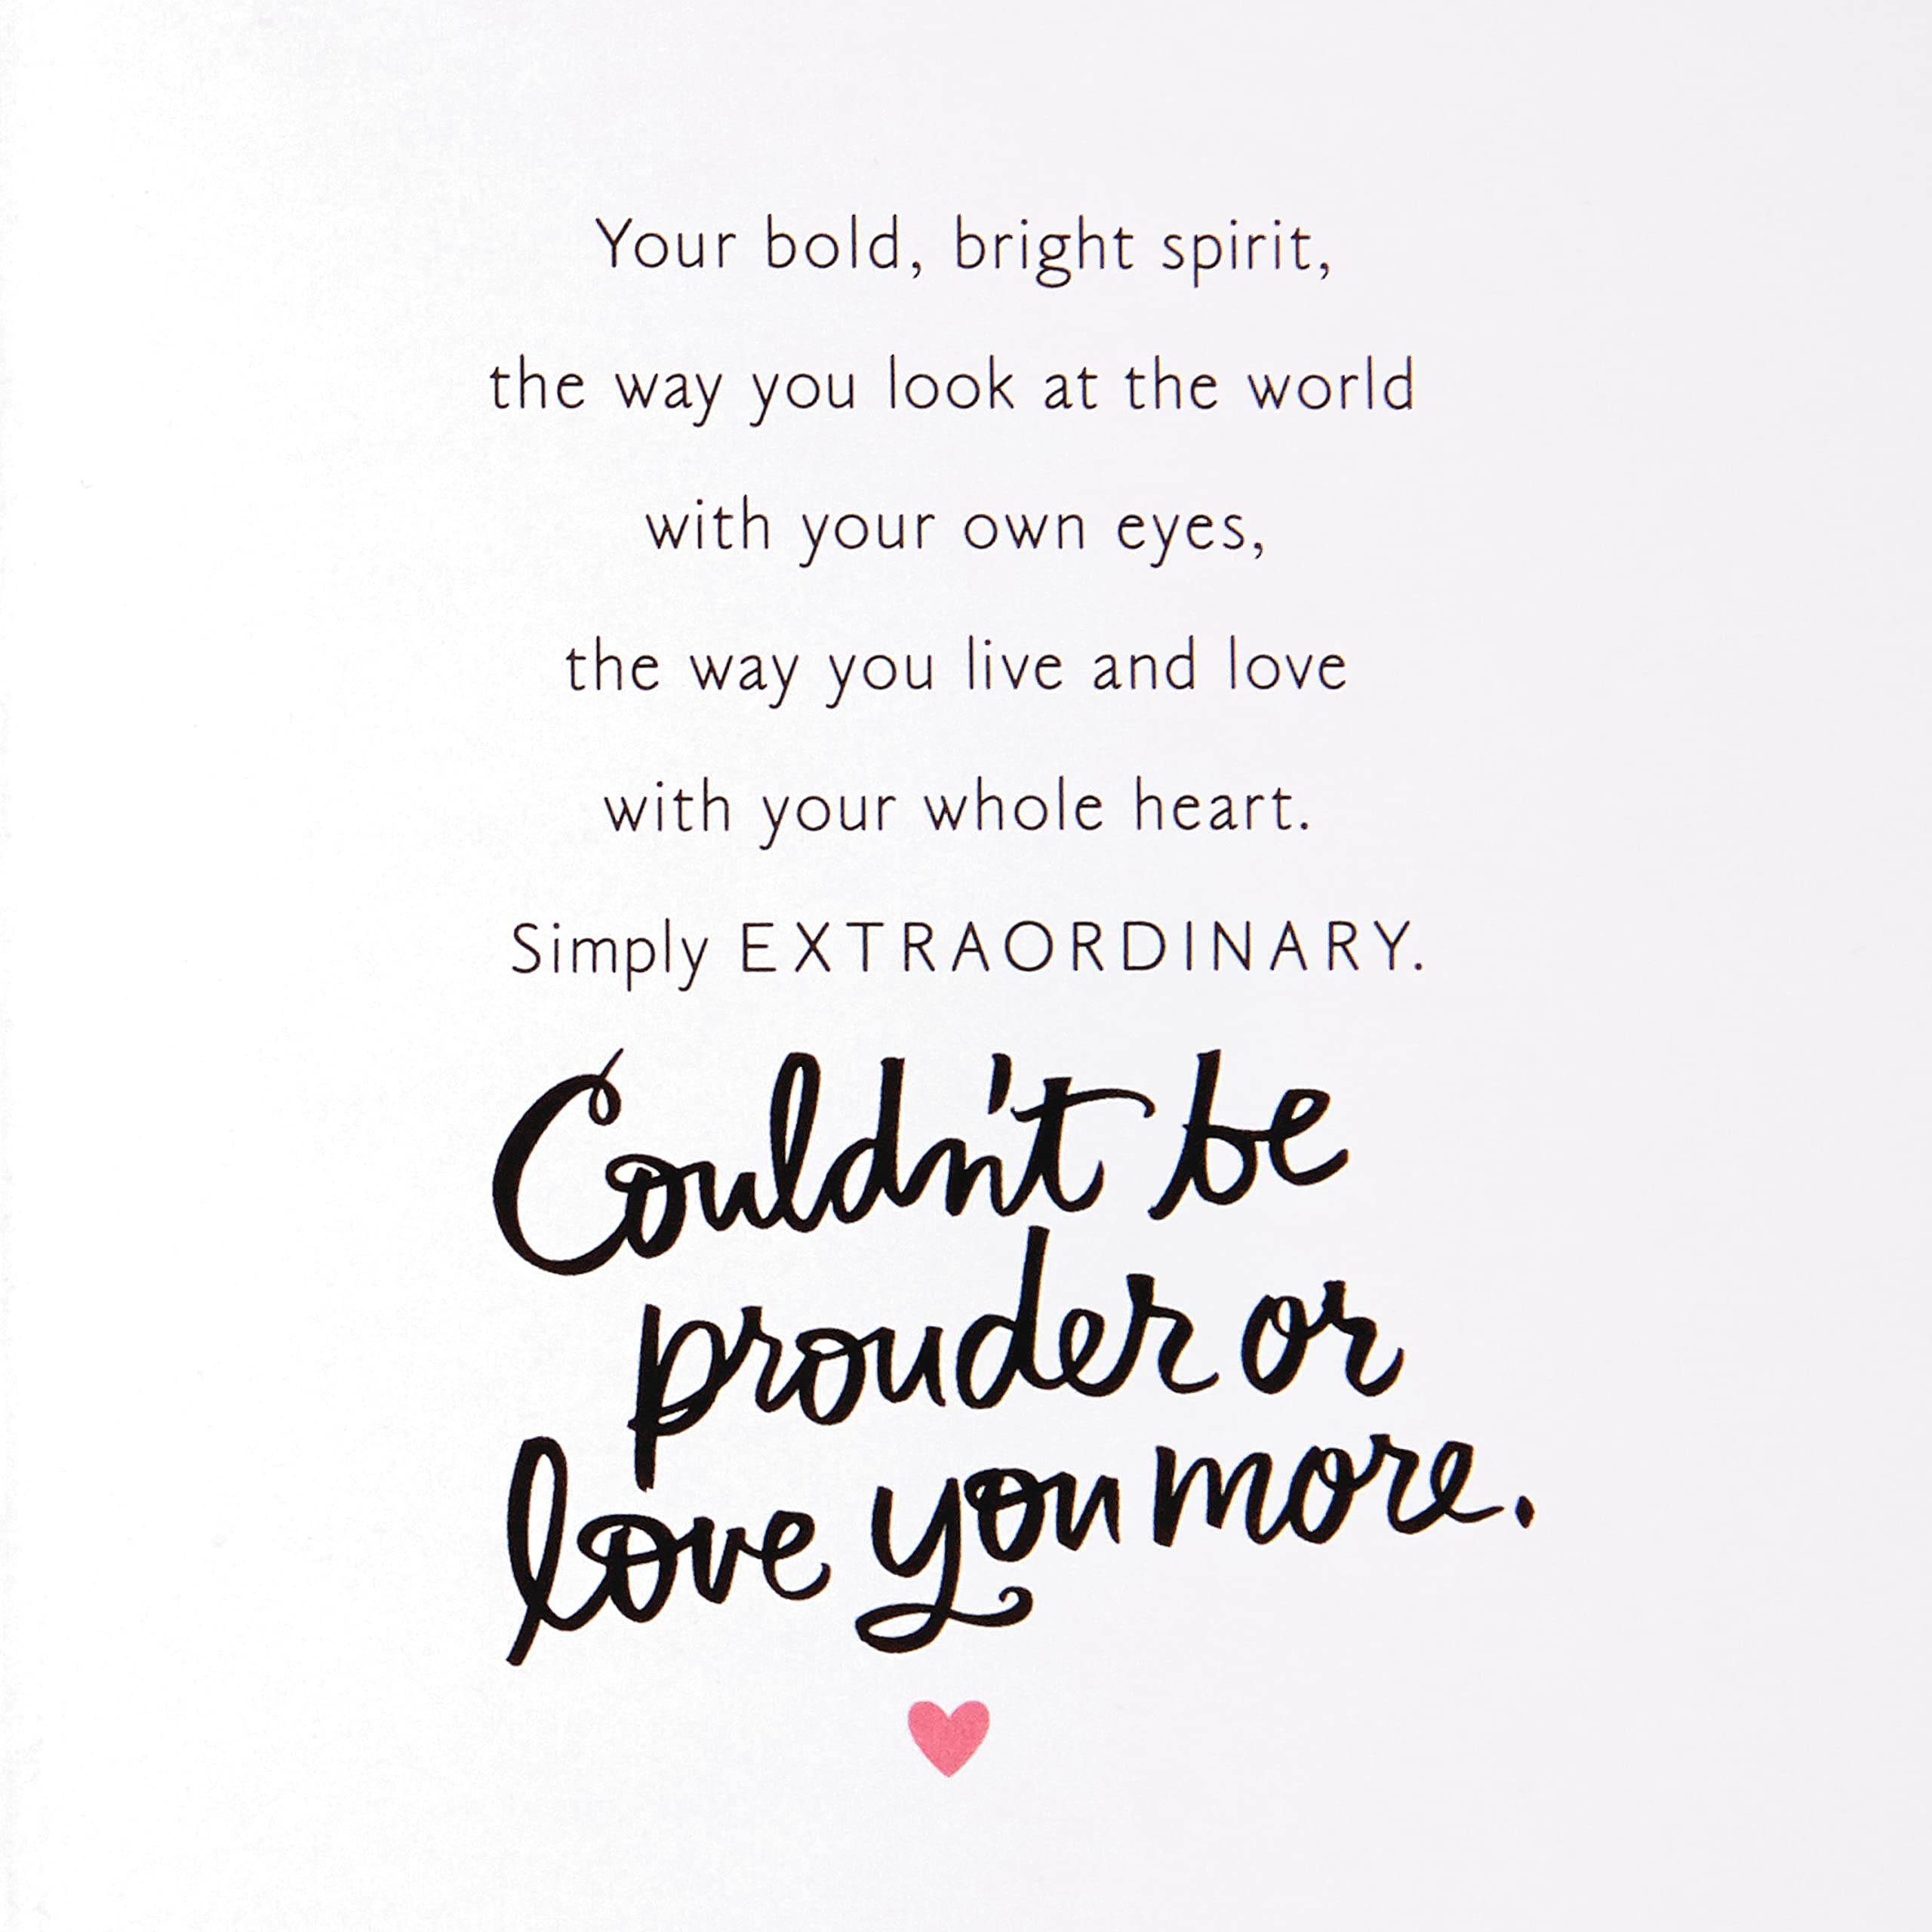 Your bold, bright spirit,
the way you look at the world
with your own eyes,
the way you live and love
with your whole heart.
Simply EXTRAORDINARY.
Couldn't be
prouder or
love you more.